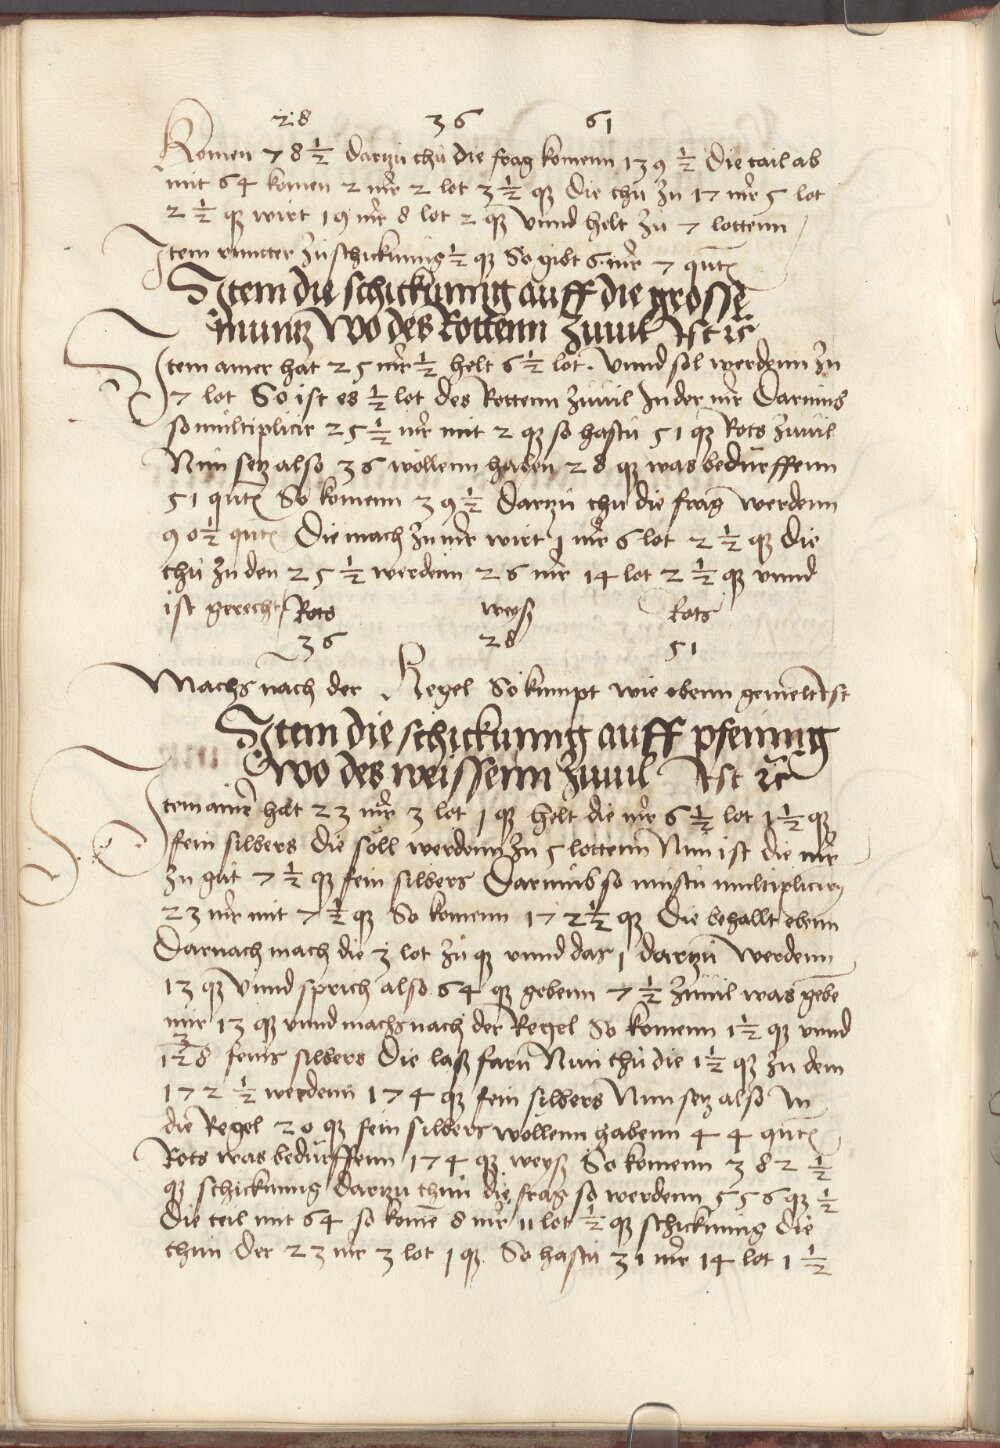 28 36 61
Komen 78 1/2 dartzu thu die frag komenn 139 1/2 die tail ab
mit 64 komen 2 mr 2 lot 3 1/2 q̃ die thu zu 17 mr 5 lot
2 1/2 q̃ wirt 19 mr 8 lot 2 q̃ vnnd helt zu 7 lottenn
Item zuschickunng 1/2 q̃ So gibt 6 mr 7 qut
Item die schickunng auff die grosse
muntz wo des Rottenn zuuil Ist ꝛc
Item ainer hat 25 mr 1/2 helt 6 1/2 lot. vnnd sol werdenn zu
7 lot So ist es 1/2 lot des Rottenn zuuil In der mr Darumb
so multiplicir 25 1/2 mr mit 2 q̃ so hastu 51 q̃ Rots zuuil
Nun setz also 36 wollenn haben 28 q̃ was bedurffenn
51 qut So komenn 39 1/2 dartzu thu die frag werdenn
90 1/2 qut Die mach zu mr wirt 1 mr 6 lot 2 1/2 q̃ die
thu zu den 25 1/2 werdenn 26 mr 14 lot 2 1/2 q̃ vnnd
ist gerecht / Rots weyß Rots
36 28 51
Machs nach der Regel So kumpt wie obenn gemelt Ist
Item die schickunng auff pfening
wo des weissenn zuuil Ist ꝛc
Item ainer hat 23 mr 3 lot 1 q̃ helt die mr 6 1/2 lot 1 1/2 q̃
fein silbers die soll werdenn zu 5 lottenn Nun ist die mr
zu gut 7 1/2 q̃ fein silbers Darumb so mustu multiplicirn
23 mr mit 7 1/2 q̃ So komenn 172 1/2 q̃ Die behallt ebenn
Darnach mach die 3 lot zu q̃ vnnd das 1 dartzu werdenn
13 q̃ vnnd sprich also 64 q̃ gebenn 7 1/2 zuuil was gebe
mir 13 q̃ vnnd machs nach der Regel So komenn 1 1/2 q̃ vnnd
3/128 feins silbers Die laß farn Nun thu die 1 1/2 q̃ zu dem
172 1/2 werdenn 174 q̃ fein silbers Nun setz also In
die Regel 20 q̃ fein silbers wollenn habenn 44 qut
Rots was bedurffenn 174 q̃ weyß So komenn 382 1/2
q̃ schickunng dartzu thun die frag so werdenn 556 q̃ 1/2
Die teil mit 64 so kome 8 mr 11 lot 1/2 q̃ schickunng die
thun der 23 mr 3 lot 1 q̃ So hastu 31 mr 14 lot 1 1/2